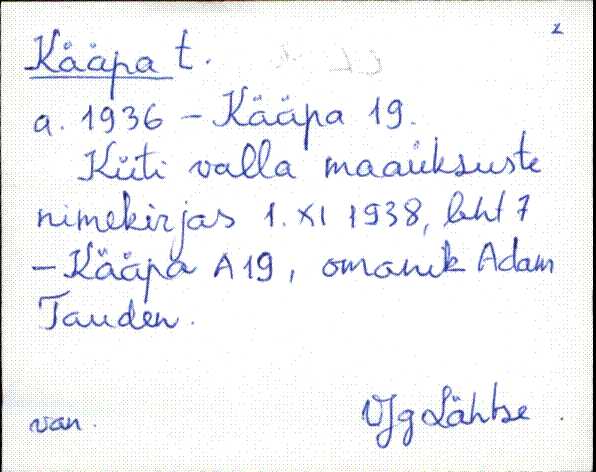 Kääpa t.
a. 1936 - Kääpa 19.
Küti valla maaüksuste
nimekirjas 1. XI 1938, lhk 7
- Kääpa A 19, omanik Adam
Tauden.
van. VJg Lähtse